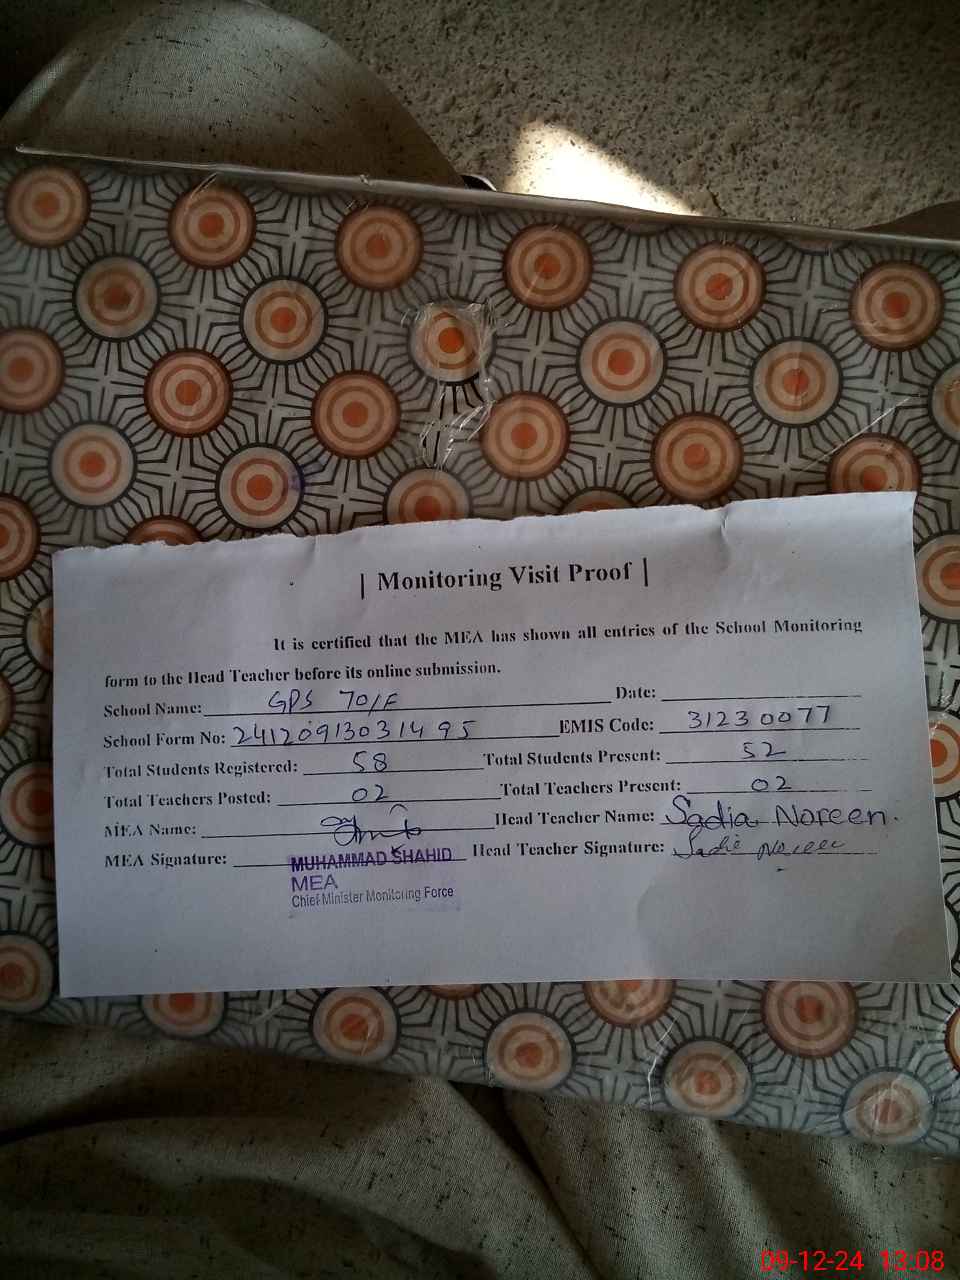 | Monitoring Visit Proof |
It is certified that the MEA has shown all entries of the School Monitoring
form to the Head Teacher before its online submission.
School Name: GPS 70/F Date:
School Form No: 24120913031495 EMIS Code: 31230077
Total Students Registered: 58 Total Students Present: 52
Total Teachers Posted: 02 Total Teachers Present: 02
MEA Name: Head Teacher Name: Sadia Noreen.
MEA Signature: Head Teacher Signature: Sadia Noreen
MUHAMMAD SHAHID
MEA
Chief Minister Monitoring Force
09-12-24 13:08